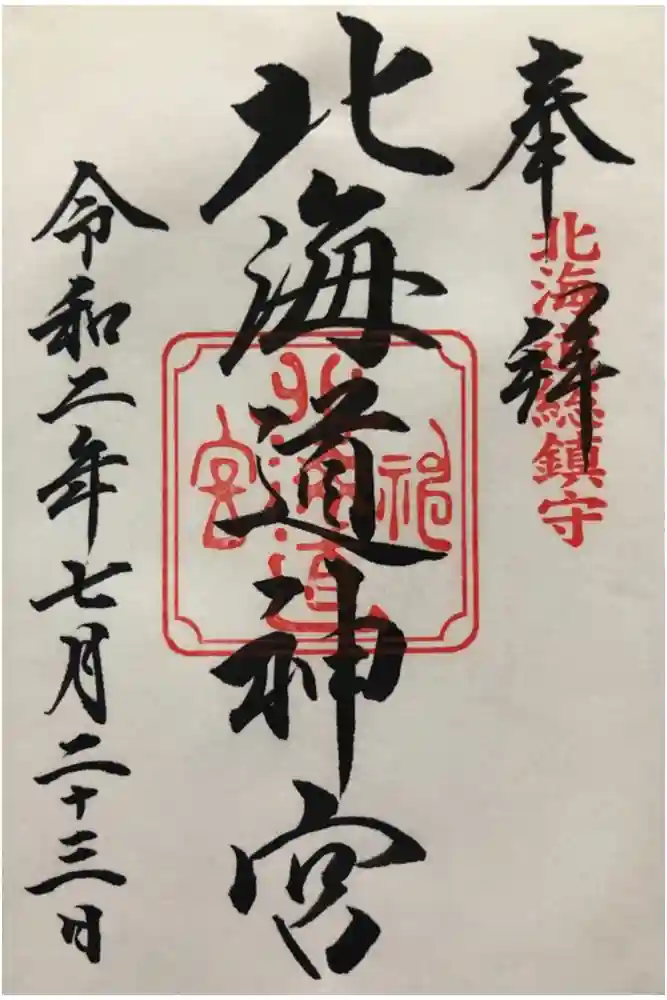 奉拝
北海道總鎮守
北海道神宮
北海道神宮
令和二年七月二十三日